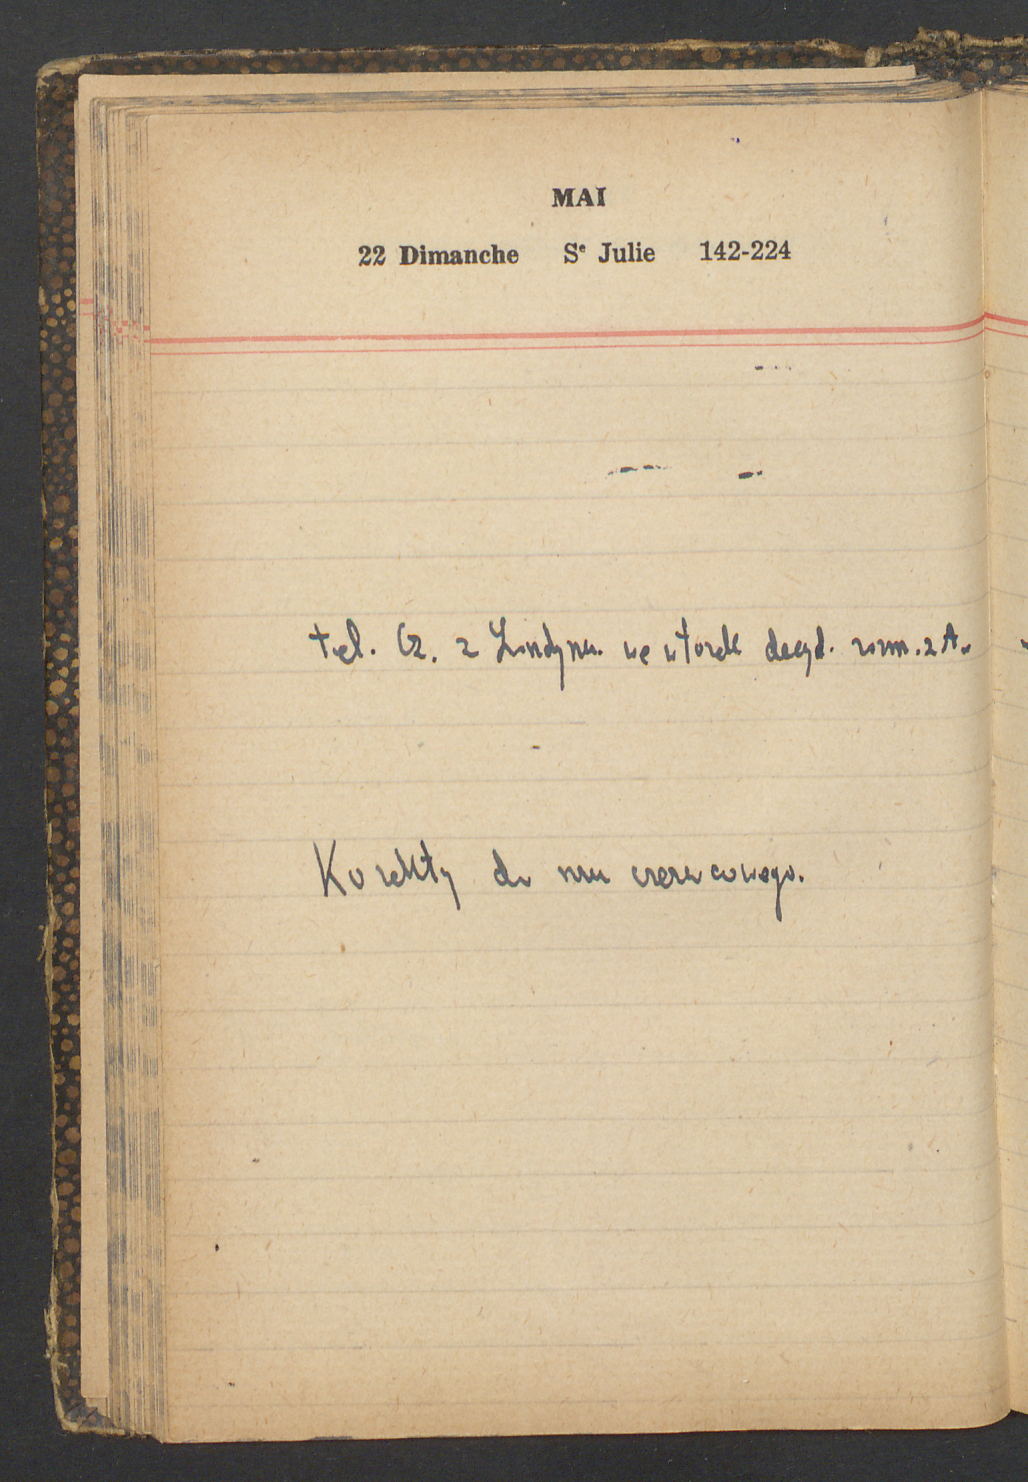 MAI
22 Dimanche Se Julie 142-224
tel. Cz. z Londynu. we wtorek decyd. rozm. z A.
Korekty do nru czerwcowego.